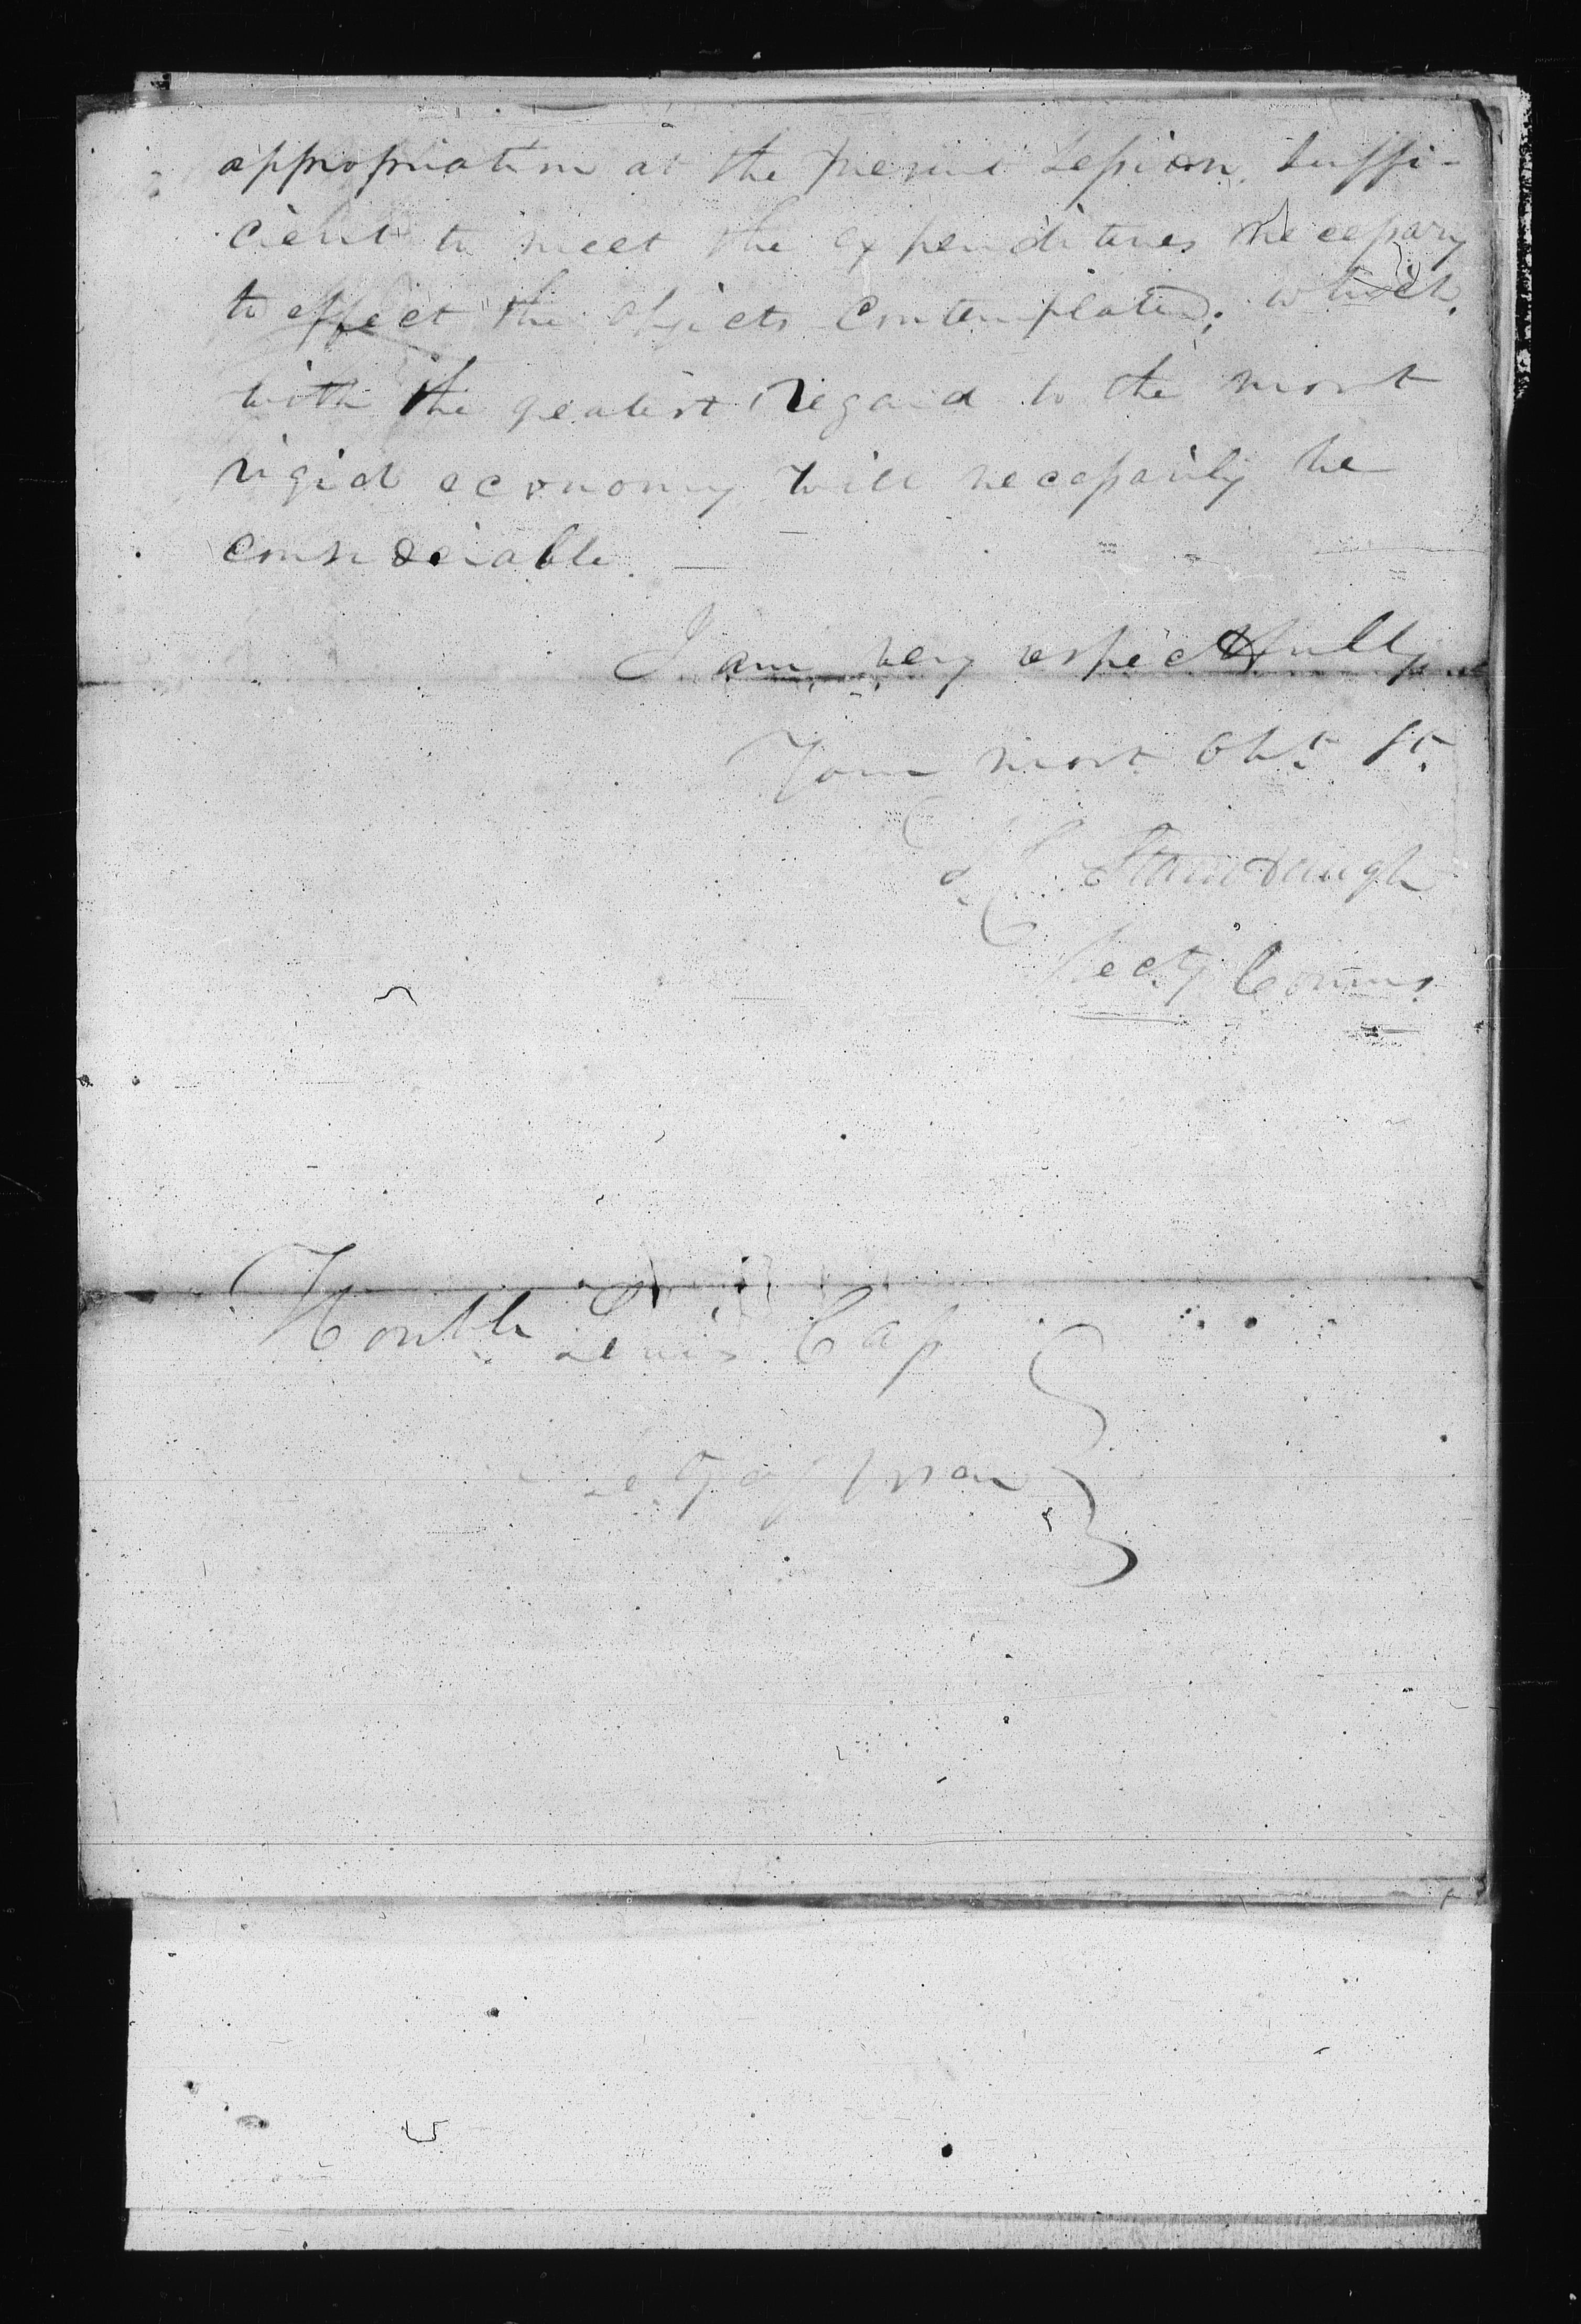 appropriation at the present Session, suffi-
cient to meet the expenditures necessary
to effect the objects contemplated; which,
with the greatest regard to the most
rigid economy will necessarily be
considerable. —
I am very respectfully
Your most Obt. St.
S. C. Stambaugh
Secty Comrs
Honble Lewis Cass
Secty of War